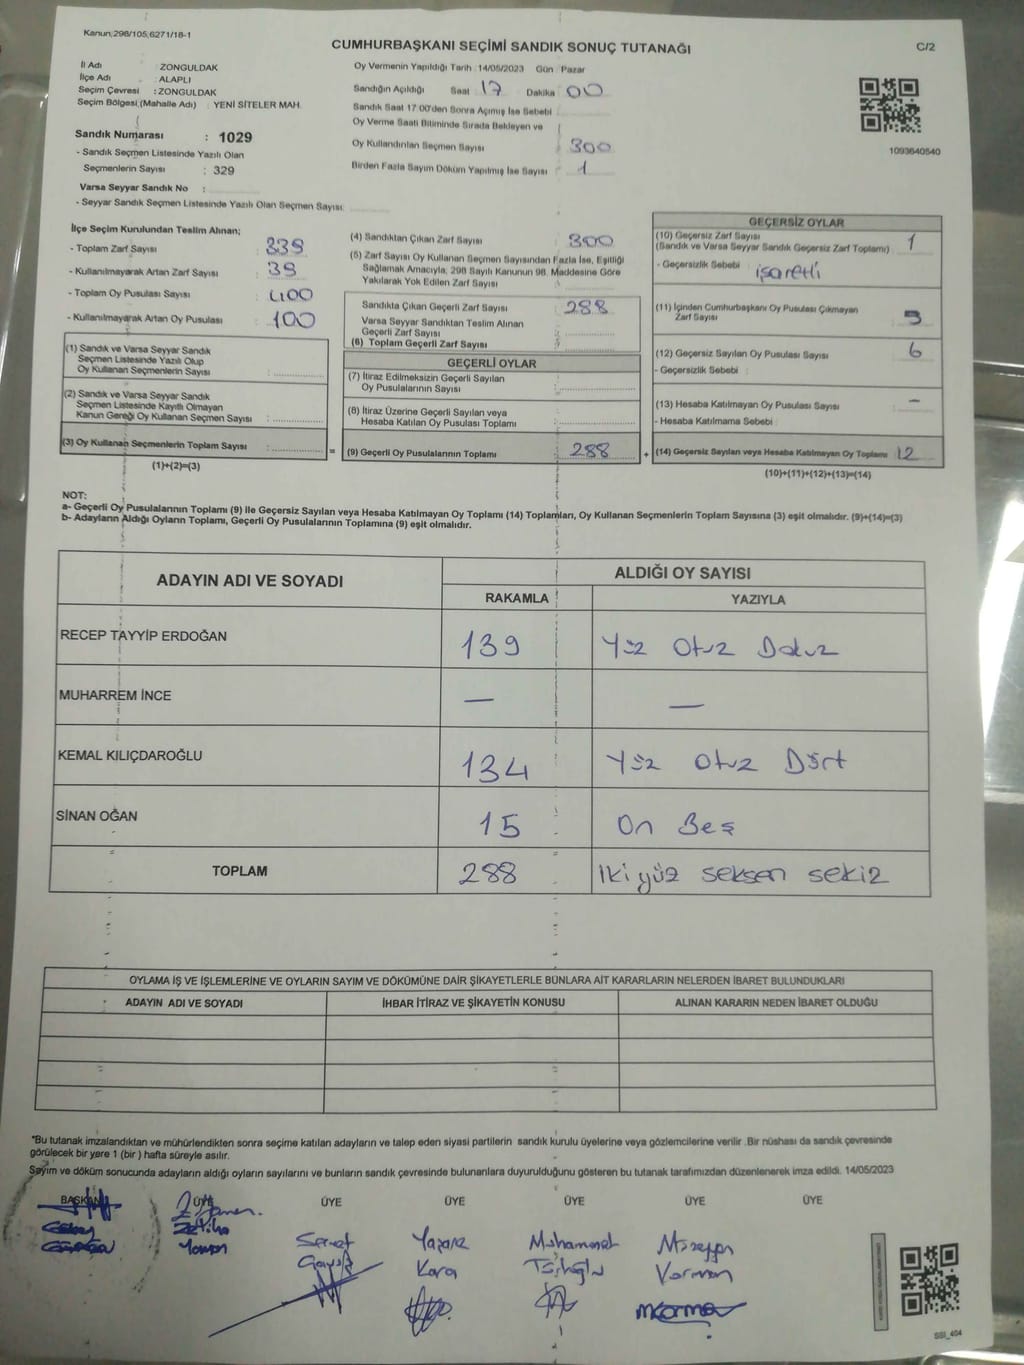 Kanun;298/105,6271/18-1
C/2
CUMHURBAŞKANI SEÇİMİ SANDIK SONUÇ TUTANAĞI
İl Adı : ZONGULDAK
İlçe Adı : ALAPLI
Seçim Çevresi : ZONGULDAK
Seçim Bölgesi (Mahalle Adı) : YENİ SİTELER MAH.
Sandık Numarası : 1029
- Sandık Seçmen Listesinde Yazılı Olan
Seçmenlerin Sayısı : 329
Varsa Seyyar Sandık No :
- Seyyar Sandık Seçmen Listesinde Yazılı Olan Seçmen Sayısı:
Oy Vermenin Yapıldığı Tarih : 14/05/2023 Gün : Pazar
Sandığın Açıldığı Saat : 17 Dakika : 00
Sandık Saat 17:00'den Sonra Açılmış İse Sebebi :
Oy Verme Saati Bitiminde Sırada Bekleyen ve
Oy Kullandırılan Seçmen Sayısı : 300
Birden Fazla Sayım Döküm Yapılmış İse Sayısı : 1
1093640540
İlçe Seçim Kurulundan Teslim Alınan;
- Toplam Zarf Sayısı : 339
- Kullanılmayarak Artan Zarf Sayısı : 39
- Toplam Oy Pusulası Sayısı : 400
- Kullanılmayarak Artan Oy Pusulası : 100
(1) Sandık ve Varsa Seyyar Sandık
Seçmen Listesinde Yazılı Olup
Oy Kullanan Seçmenlerin Sayısı :
(2) Sandık ve Varsa Seyyar Sandık
Seçmen Listesinde Kayıtlı Olmayan
Kanun Gereği Oy Kullanan Seçmen Sayısı :
(3) Oy Kullanan Seçmenlerin Toplam Sayısı :
(1)+(2)=(3)
=
(4) Sandıktan Çıkan Zarf Sayısı : 300
(5) Zarf Sayısı Oy Kullanan Seçmen Sayısından Fazla İse, Eşitliği
Sağlamak Amacıyla, 298 Sayılı Kanunun 98. Maddesine Göre
Yakılarak Yok Edilen Zarf Sayısı :
Sandıkta Çıkan Geçerli Zarf Sayısı : 288
Varsa Seyyar Sandıktan Teslim Alınan
Geçerli Zarf Sayısı :
(6) Toplam Geçerli Zarf Sayısı :
GEÇERLİ OYLAR
(7) İtiraz Edilmeksizin Geçerli Sayılan
Oy Pusulalarının Sayısı :
(8) İtiraz Üzerine Geçerli Sayılan veya
Hesaba Katılan Oy Pusulası Toplamı :
(9) Geçerli Oy Pusulalarının Toplamı : 288
+
GEÇERSİZ OYLAR
(10) Geçersiz Zarf Sayısı : 1
(Sandık ve Varsa Seyyar Sandık Geçersiz Zarf Toplamı)
- Geçersizlik Sebebi : işaretli
(11) İçinden Cumhurbaşkanı Oy Pusulası Çıkmayan
Zarf Sayısı : 5
(12) Geçersiz Sayılan Oy Pusulası Sayısı : 6
- Geçersizlik Sebebi :
(13) Hesaba Katılmayan Oy Pusulası Sayısı : -
- Hesaba Katılmama Sebebi :
(14) Geçersiz Sayılan veya Hesaba Katılmayan Oy Toplamı : 12
(10)+(11)+(12)+(13)=(14)
NOT:
a- Geçerli Oy Pusulalarının Toplamı (9) ile Geçersiz Sayılan veya Hesaba Katılmayan Oy Toplamı (14) Toplamları, Oy Kullanan Seçmenlerin Toplam Sayısına (3) eşit olmalıdır. (9)+(14)=(3)
b- Adayların Aldığı Oyların Toplamı, Geçerli Oy Pusulalarının Toplamına (9) eşit olmalıdır.
ADAYIN ADI VE SOYADI
ALDIĞI OY SAYISI
RAKAMLA YAZIYLA
RECEP TAYYİP ERDOĞAN 139 Yüz Otuz Dokuz
MUHARREM İNCE — —
KEMAL KILIÇDAROĞLU 134 Yüz Otuz Dört
SİNAN OĞAN 15 On Beş
TOPLAM 288 İki yüz seksen sekiz
OYLAMA İŞ VE İŞLEMLERİNE VE OYLARIN SAYIM VE DÖKÜMÜNE DAİR ŞİKAYETLERLE BUNLARA AİT KARARLARIN NELERDEN İBARET BULUNDUKLARI
ADAYIN ADI VE SOYADI İHBAR İTİRAZ VE ŞİKAYETİN KONUSU ALINAN KARARIN NEDEN İBARET OLDUĞU
*Bu tutanak imzalandıktan ve mühürlendikten sonra seçime katılan adayların ve talep eden siyasi partilerin sandık kurulu üyelerine veya gözlemcilerine verilir .Bir nüshası da sandık çevresinde
görülecek bir yere 1 (bir ) hafta süreyle asılır.
Sayım ve döküm sonucunda adayların aldığı oyların sayılarını ve bunların sandık çevresinde bulunanlara duyurulduğunu gösteren bu tutanak tarafımızdan düzenlenerek imza edildi. 14/05/2023
BAŞKAN ÜYE ÜYE ÜYE ÜYE ÜYE ÜYE
Zeliha Yaman
Kara
Muhammet
SSI_404